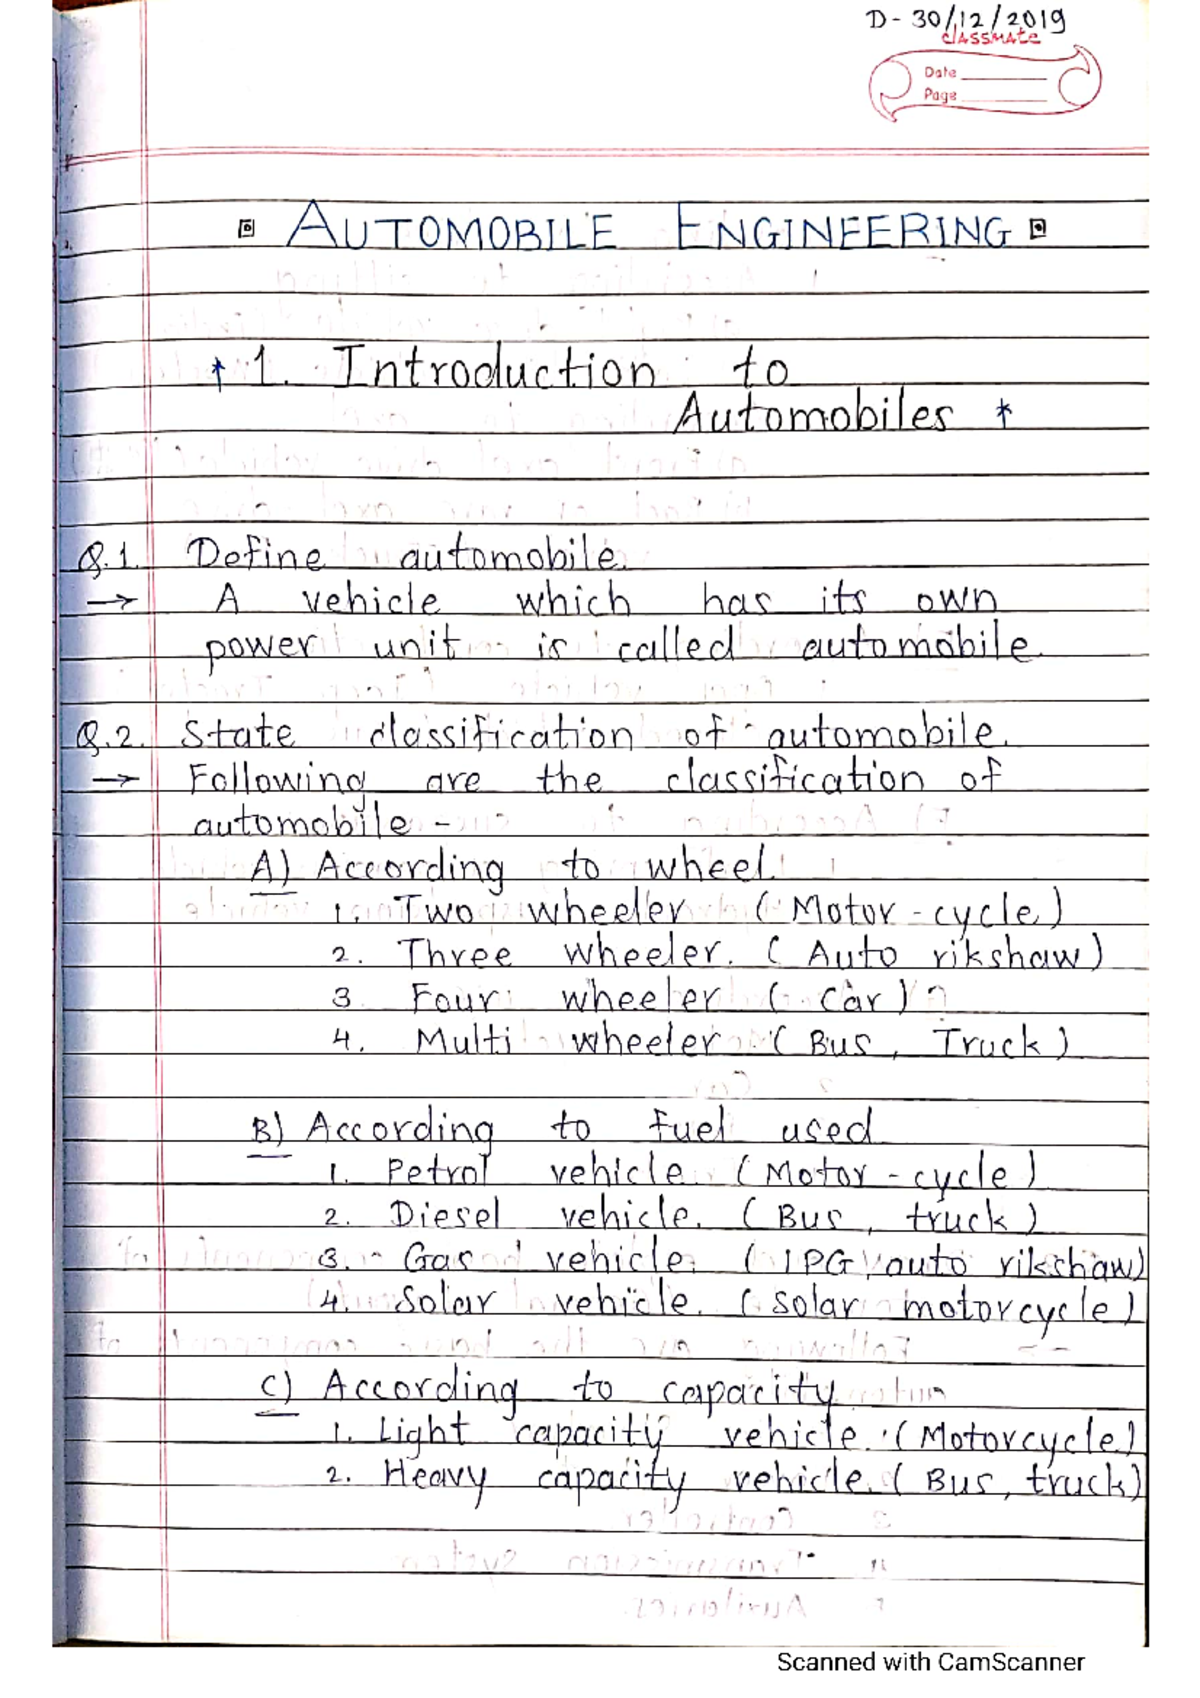 D- 30/12/2019
classmate
Date
Page
AUTOMOBILE ENGINEERING
* 1. Introduction to
Automobiles *
Q.1. Define automobile.
→ A vehicle which has its own
power unit is called automobile
Q.2. State classification of automobile.
→ Following are the classification of
automobile -
A) According to wheel.
1. Two wheeler (Motor-cycle)
2. Three wheeler. (Auto rikshaw)
3 Four wheeler (car)
4. Multi wheeler (Bus, Truck)
B) According to fuel used
1. Petrol vehicle. (Motor-cycle)
2. Diesel vehicle. (Bus, truck)
3. Gas vehicle. (LPG auto rikshaw)
4. Solar vehicle. (solar motorcycle)
C) According to capacity
1. Light capacity vehicle. (Motorcycle)
2. Heavy capacity vehicle. (Bus, truck)
Scanned with CamScanner